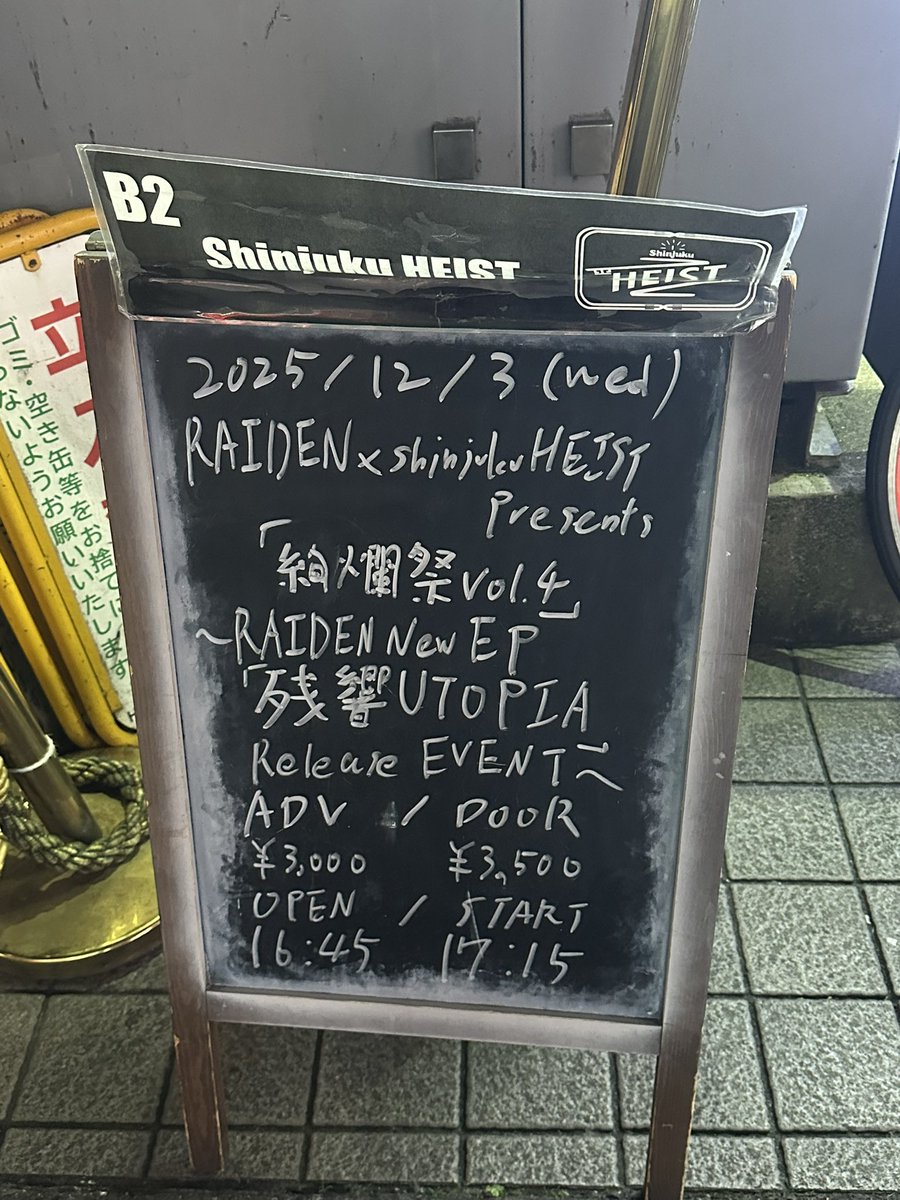 B2
Shinjuku HEIST
Shinjuku
HEIST
2025/12/3 (wed)
RAIDEN x shinjuku HEIST
Presents
「絢爛祭 Vol.4」
~RAIDEN New EP
「残響UTOPIA」
Release EVENT~
ADV / DOOR
¥3,000 ¥3,500
OPEN / START
16:45 17:15
立
ゴミ・空き缶等をお捨てに
らないようお願いいたします